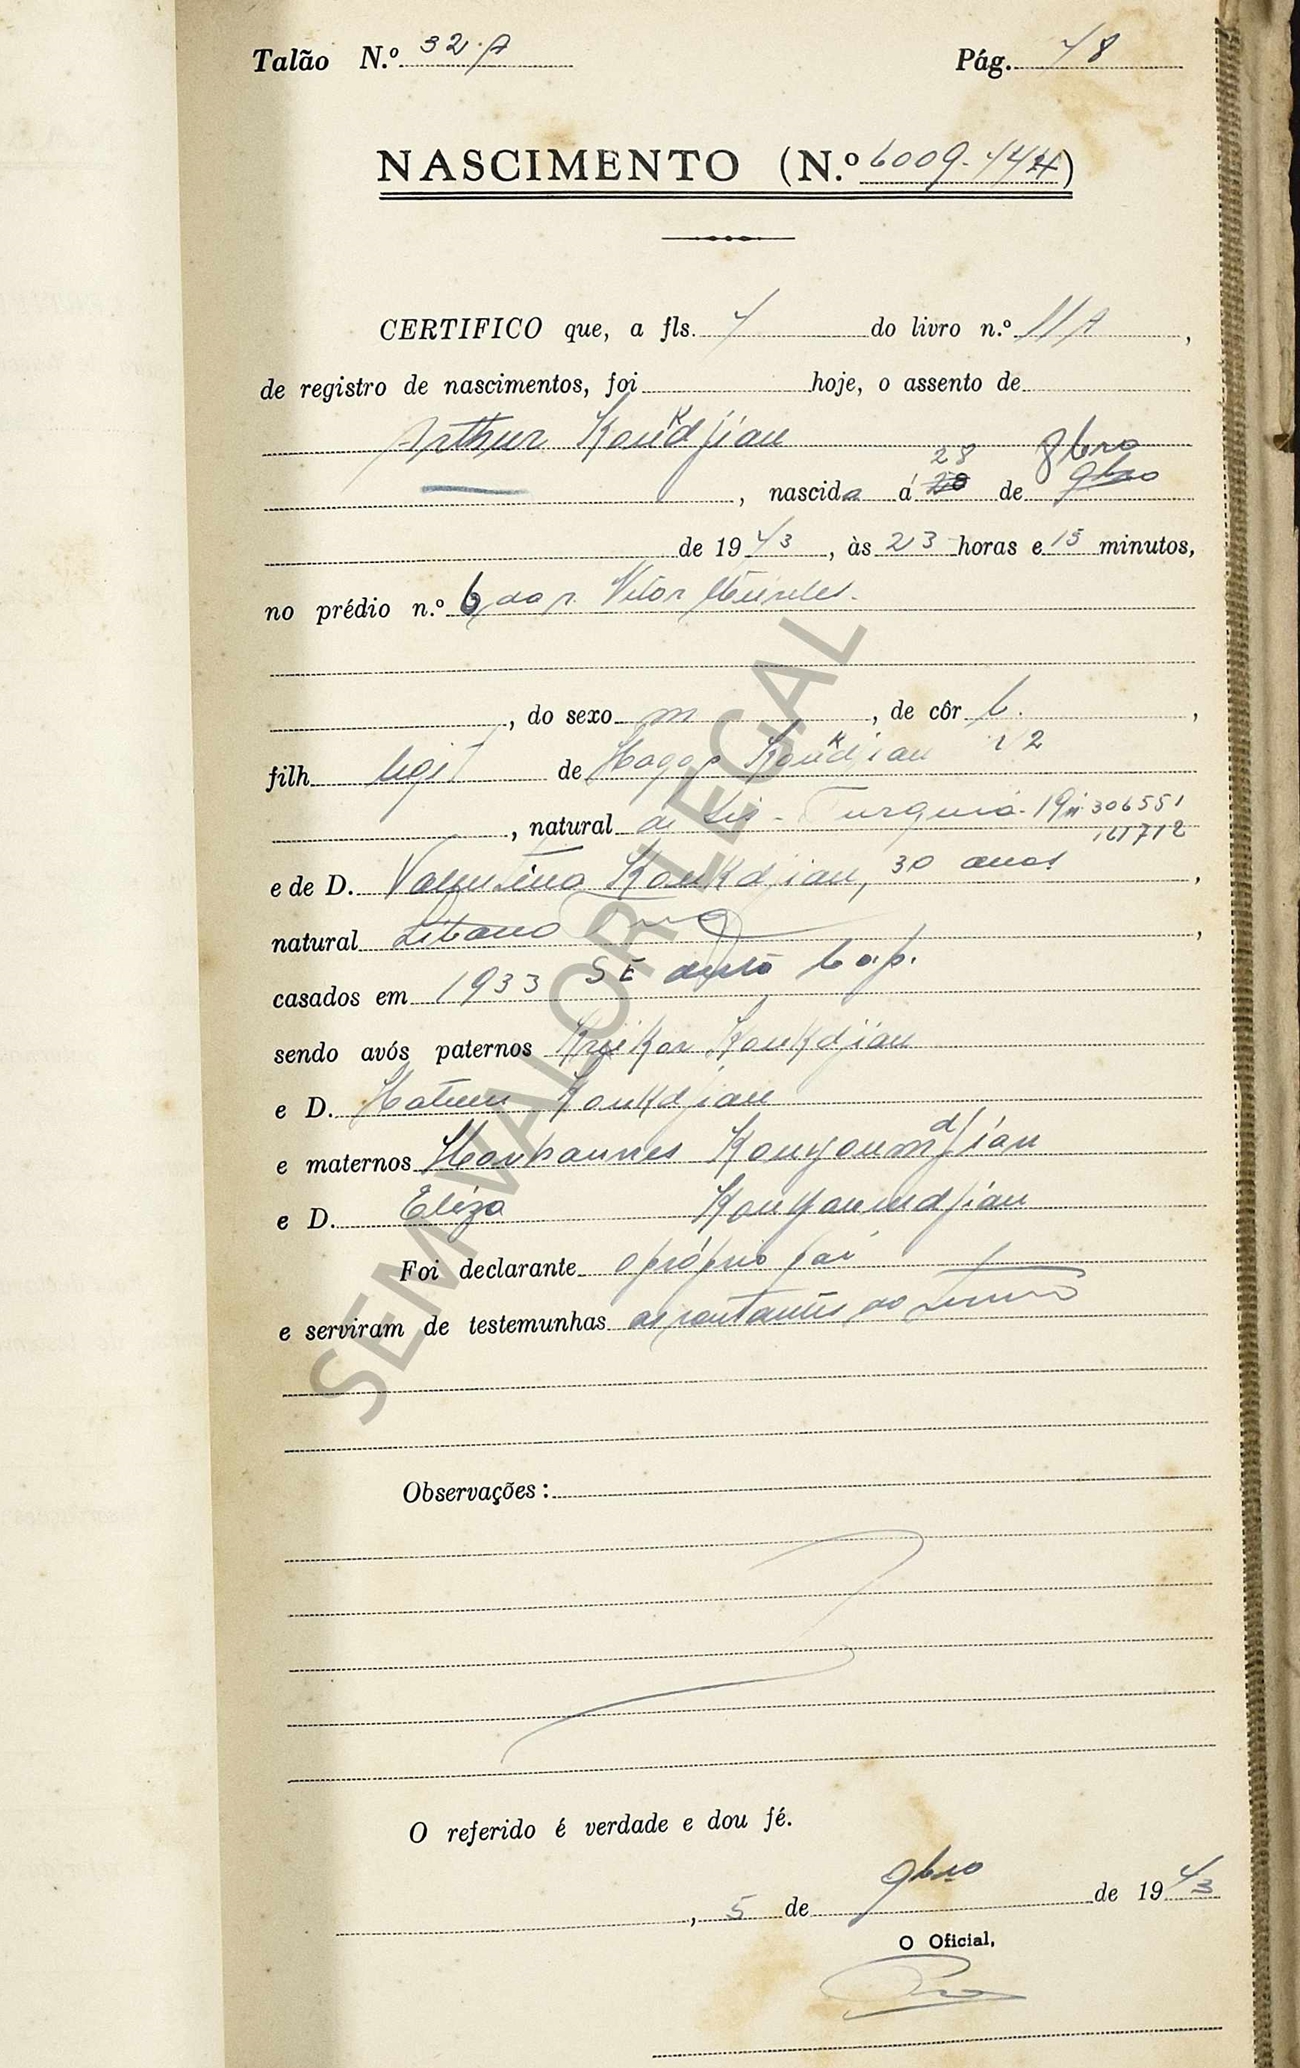 Talão N.º 32.A Pág. 48
NASCIMENTO (N.º 6009.444)
CERTIFICO que, a fls. 4 do livro n.º 11A,
de registro de nascimentos, foi hoje, o assento de
Arthur Koukdjian
28 8bro
, nascido á 28 de 9bro
de 1943, às 23 horas e 15 minutos,
no prédio n.º 6 da r. Vitor Meireles.
, do sexo m, de côr b.,
filh legit de Hagop Koukdjian 42
, natural de Sis - Turquia - 306551
e de D. Valentina Koukdjian, 30 anos,
natural Libano,
casados em 1933 SE
sendo avós paternos Krikor Koukdjian
e D. Hatun Koukdjian
e maternos Hovhannes Kouyoumdjian
e D. Eliza Kouyoumdjian
Foi declarante o próprio pai
e serviram de testemunhas as constantes do termo
Observações:
O referido é verdade e dou fé.
, 5 de 9bro de 1943
O Oficial,
SEM VALOR LEGAL